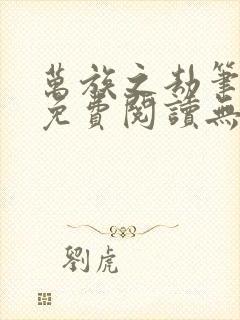 萬族之劫筆
免費閱讀無
劉虎